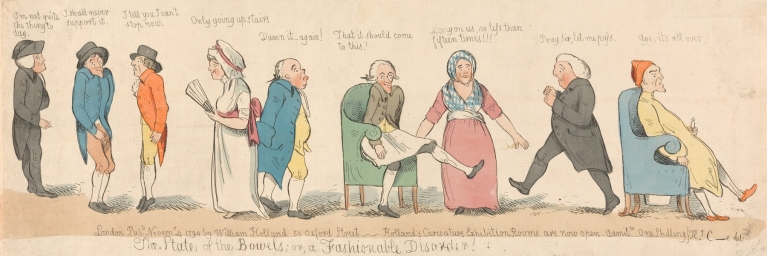 I'm not quite
the thing to
day.
I shall never
support it.
I tell you I can't
stop now.
Only going up stairs
Damn it - again!
That it should come
to this!
you us, no less than
fifteen times!!!
Pray, Sir, let me pass.
Aye, it's all over!
London Pub. Novem. 1794 by William Holland 50 Oxford Street Holland's Caricature Exhibition Rooms are now open. Admit. One Shilling
The State of the Bowels; or, a Fashionable Disorder!